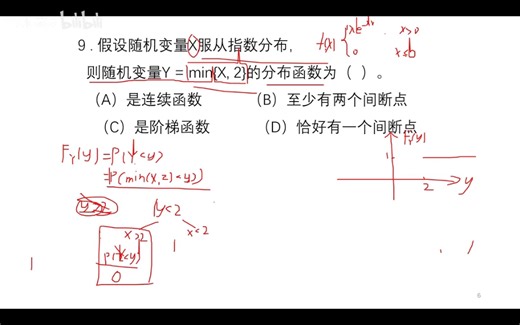 bilibili
9 . 假设随机变量X服从指数分布，
f(x) { λe^-λx x>0
0 x≤0
则随机变量Y = min{X, 2}的分布函数为（ ）。
（A）是连续函数 （B）至少有两个间断点
（C）是阶梯函数 （D）恰好有一个间断点
F_Y(y)=P(Y<y)
=P(min(X,2)<y)
y≥2 y<2
x≥2 x<2
P(2<y) 1
0
F_Y(y)
1
2 y
1
6